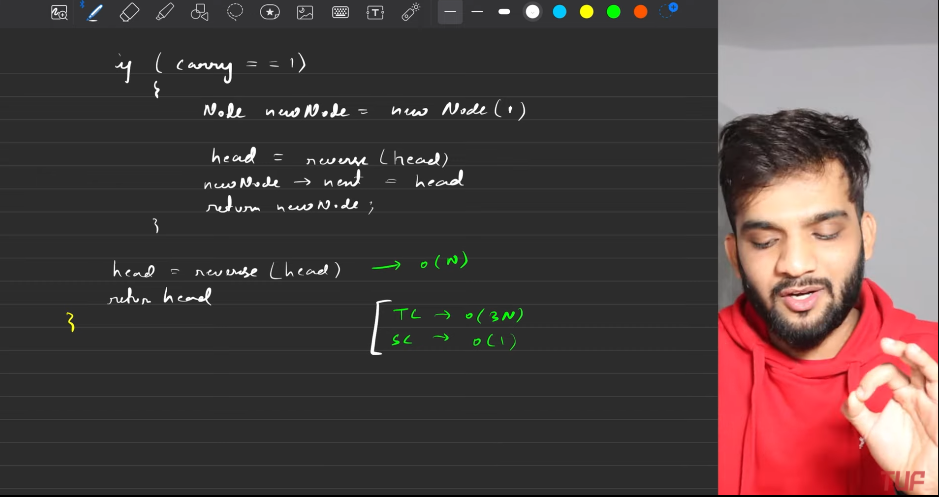 if ( carry = = 1 )
{
Node newNode = new Node ( 1 )
head = reverse ( head )
newNode → next = head
return newNode ;
}
head = reverse ( head ) → O ( N )
return head
}
TC → O ( 3N )
SC → O ( 1 )
TUF